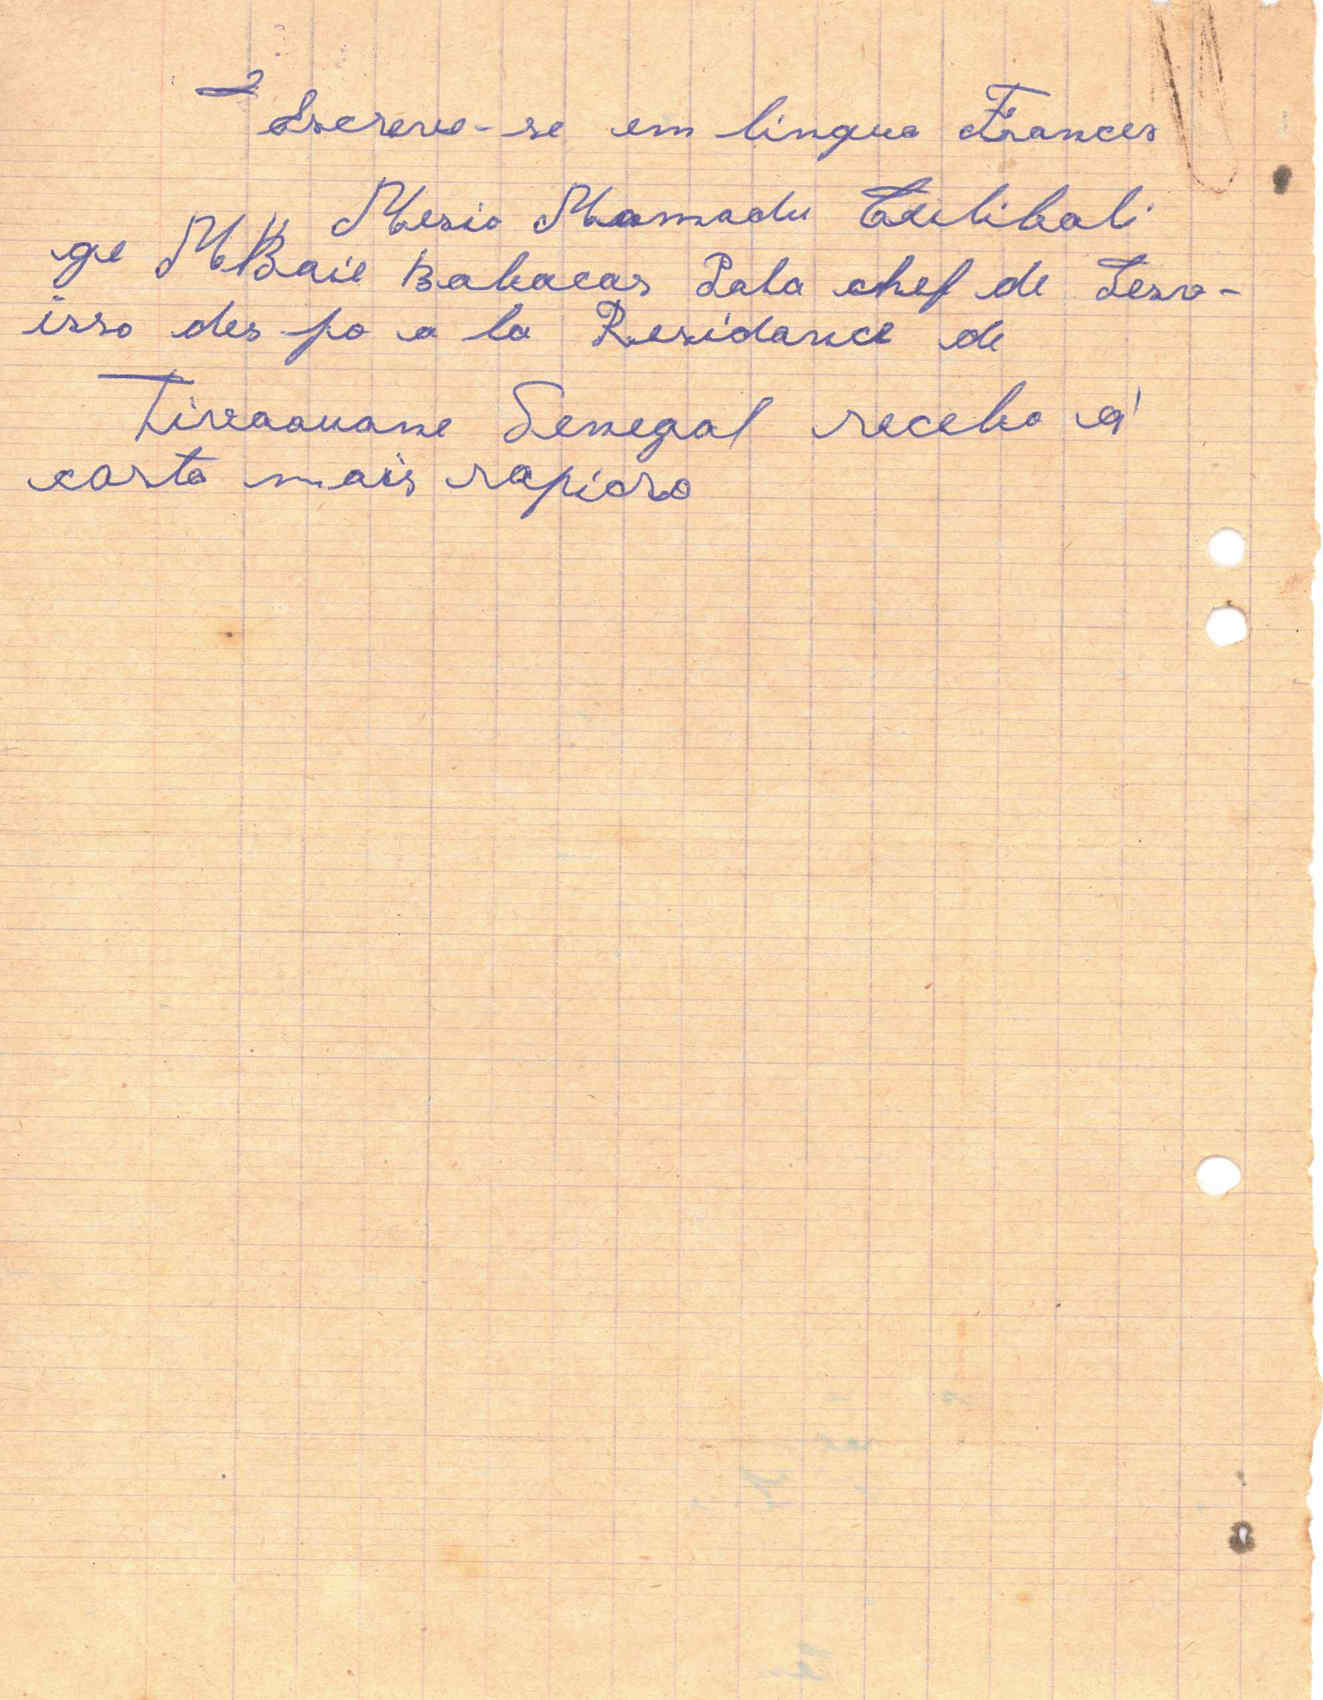 2
Escreve-se em lingua Frances
Mesio Mamadu Culibali
ge M'Baie Babacar Sala chef de Serv-
isso des po a la Residance de
Tivaouane Senegal recebo a'
carta mais rapido